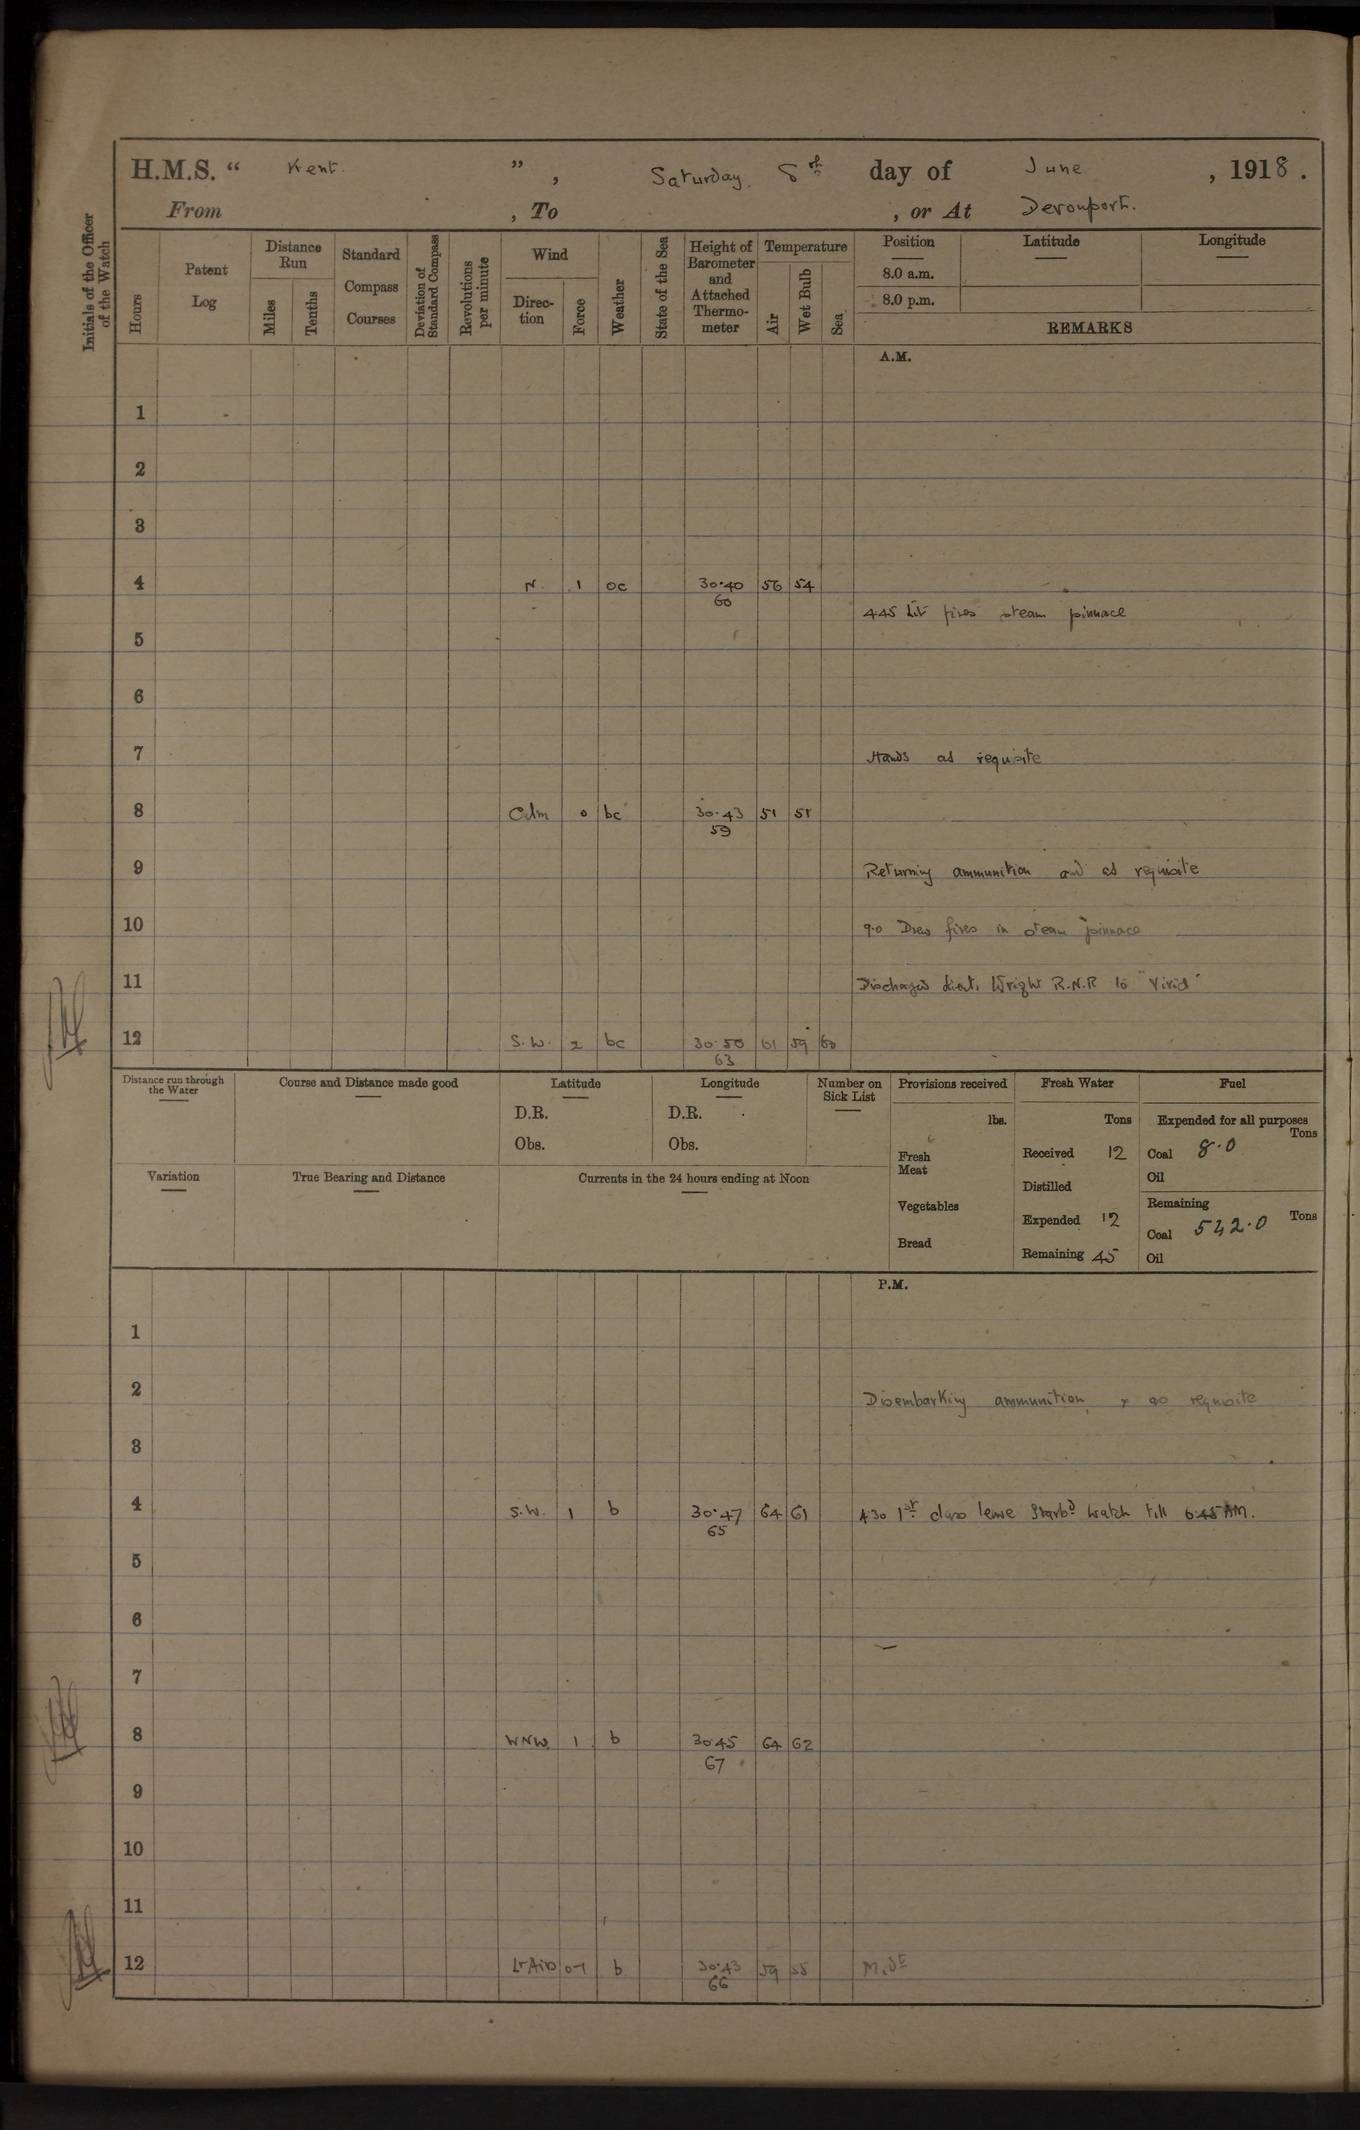 H.M.S. “ Kent ” , Saturday 8th day of June , 1918 .
From , To , or At Devonport.
Initials of the Officer of the Watch
Hours
Patent Log
Distance Run
Miles
Tenths
Standard Compass Courses
Deviation of Standard Compass
Revolutions per minute
Wind
Direc-tion
Force
Weather
State of the Sea
Height of Barometer and Attached Thermo-meter
Temperature
Air
Wet Bulb
Sea
Position
8.0 a.m.
8.0 p.m.
Latitude
Longitude
REMARKS
A.M.
1
2
3
4 N. 1 oc 30.40 56 54
60
445 Lit fires steam pinnace
5
6
7 Hands as requisite
8 Calm 0 bc 30.43 51 51
59
9 Returning ammunition and as requisite
10 9.0 Drew fires in steam pinnace
11 Discharged Lieut. Wright R.N.R to "Vivid"
12 S.W. 2 bc 30.50 61 59 60
63
Distance run through the Water
Course and Distance made good
Latitude
D.R.
Obs.
Longitude
D.R.
Obs.
Number on Sick List
Provisions received
lbs.
Fresh Meat
Vegetables
Bread
Fresh Water
Tons
Received 12
Distilled
Expended 12
Remaining 45
Fuel
Expended for all purposes
Tons
Coal 8.0
Oil
Remaining
Tons
Coal 542.0
Oil
Variation
True Bearing and Distance
Currents in the 24 hours ending at Noon
P.M.
1
2 Disembarking ammunition, & as requisite
3
4 S.W. 1 b 30.47 64 61 430 1st class leave Starbd watch till 6.45 AM.
65
5
6
7
8 WNW 1 b 30.45 64 62
67
9
10
11
12 Lt Airs 0-1 b 30.43 59
66